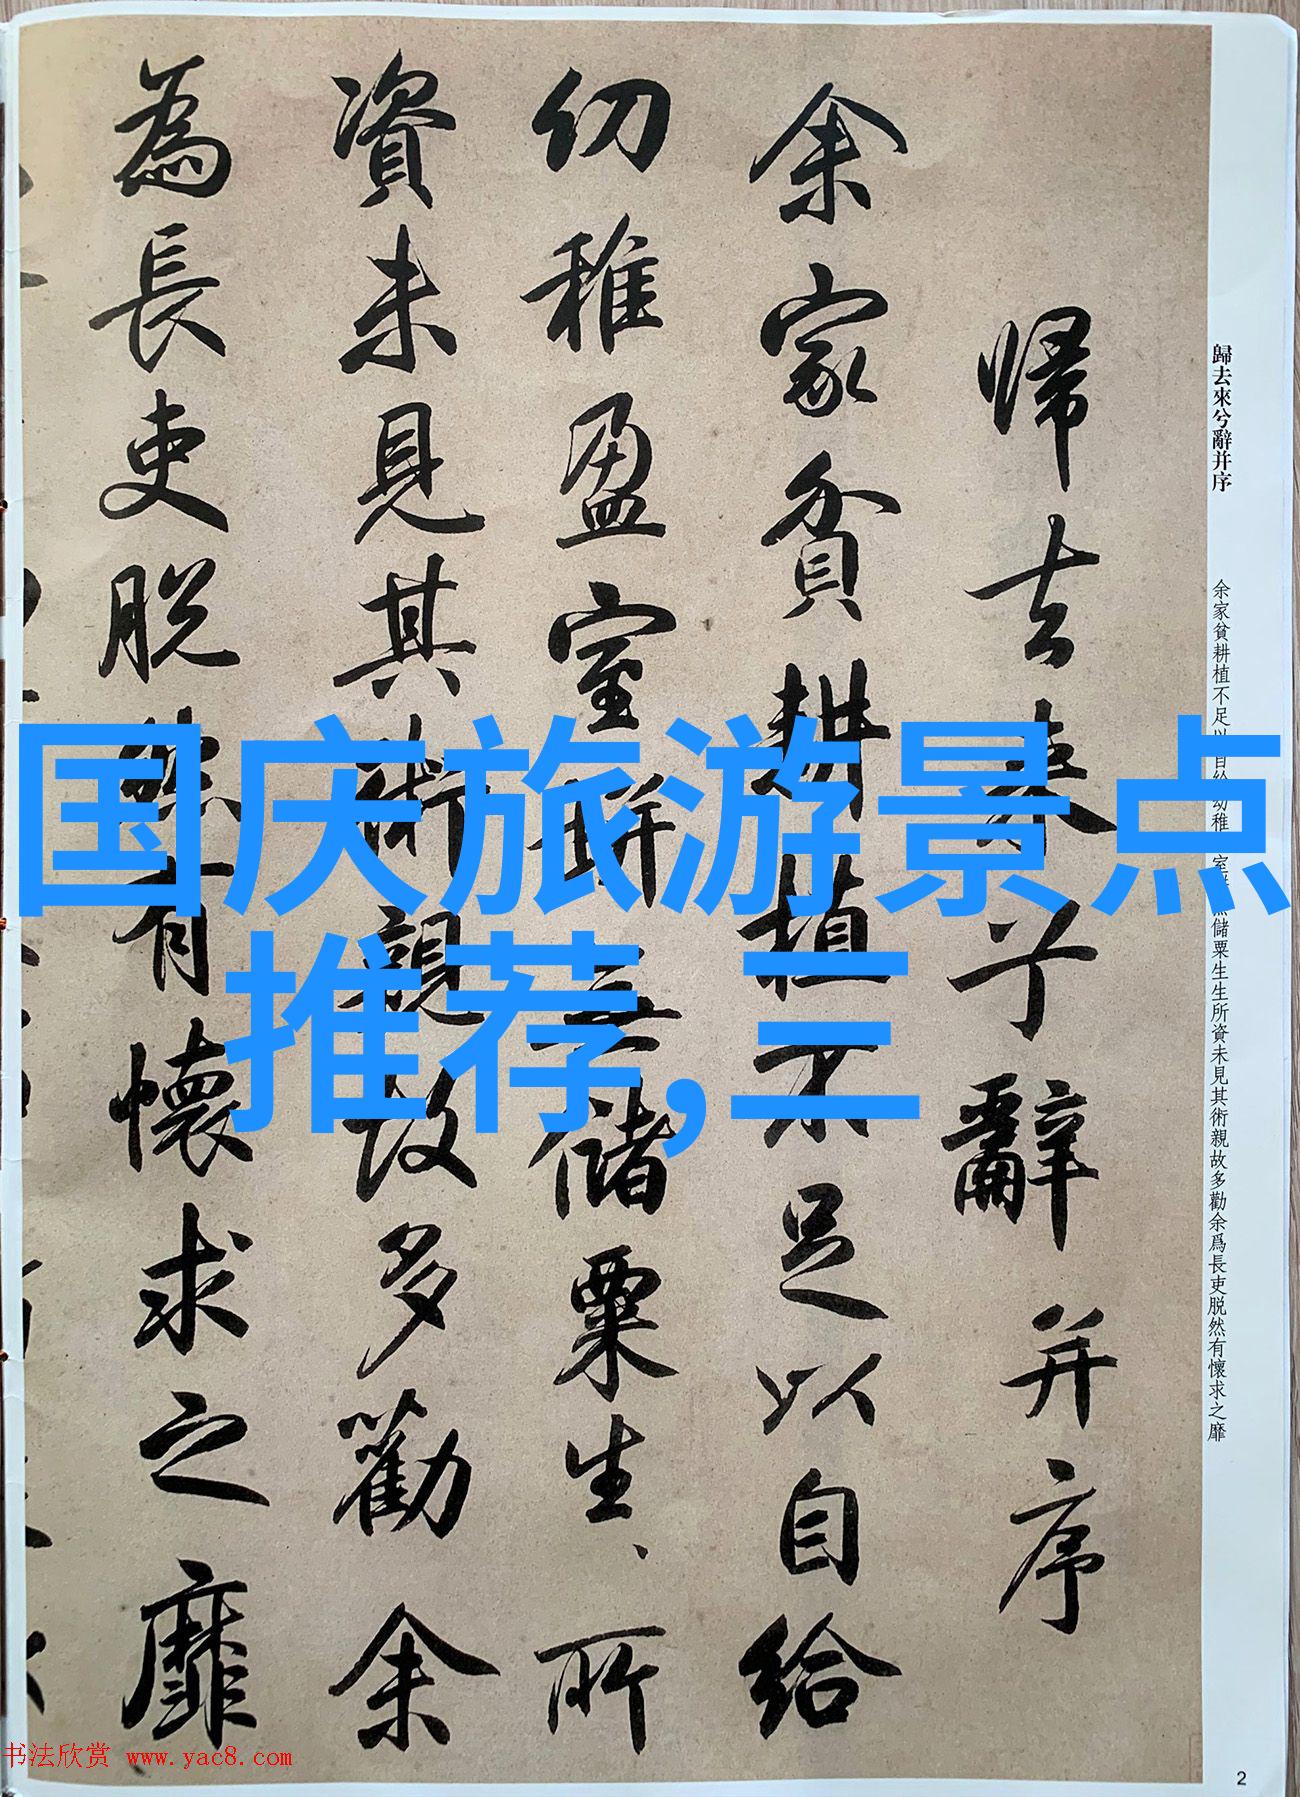 歸去來兮辭并序
余家貧耕植不足以自給
幼稚盈室缾無儲粟生生所
資未見其術親故多勸余
為長吏脱然有懷求之靡
歸去來兮辭并序
余家貧耕植不足以自給幼稚 室 無儲粟生生所資未見其術親故多勸余爲長吏脱然有懷求之靡
国庆旅游景点
推荐,三
书法欣赏 www.yac8.com
2